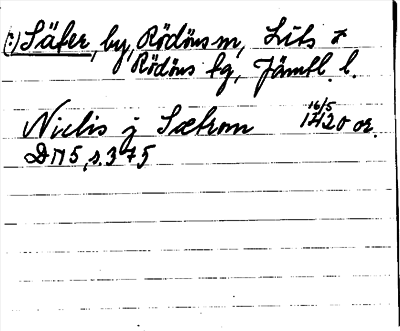 (:) Säter, by, Rödöns m, Lits t
Rödöns tg, Jämtl. l.
Niclis j Sætrom 16/5 1420 or.
DN 5, s. 375